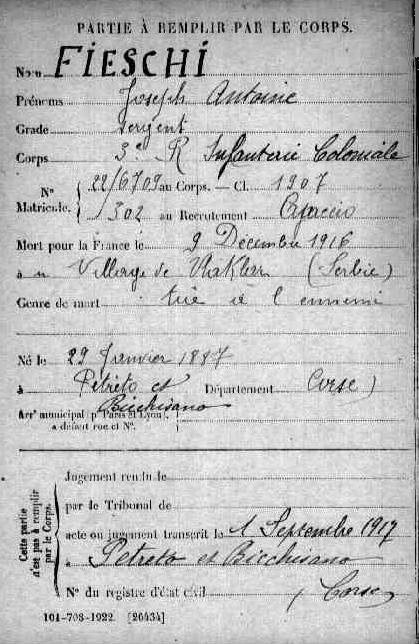 PARTIE À REMPLIR PAR LE CORPS.
Nom FIESCHI
Prénoms Joseph Antoine
Grade Sergent
Corps 3e R Infanterie Coloniale
N° Matricule. { 22/6709 au Corps. — Cl. 1907
302 au Recrutement Ajaccio
Mort pour la France le 9 Décembre 1916
à Village de (Serbie)
Genre de mort tué à l'ennemi
Né le 29 Janvier 1887
à Petreto et Bicchisano Département Corse)
Arrt municipal (pr Paris et Lyon),
à défaut rue et N°.
Cette partie n'est pas à remplir par le Corps.
Jugement rendu le
par le Tribunal de
acte ou jugement transcrit le 1 Septembre 1917
à Petreto et Bicchisano
N° du registre d'état civil (Corse)
101-708-1922. [26434]